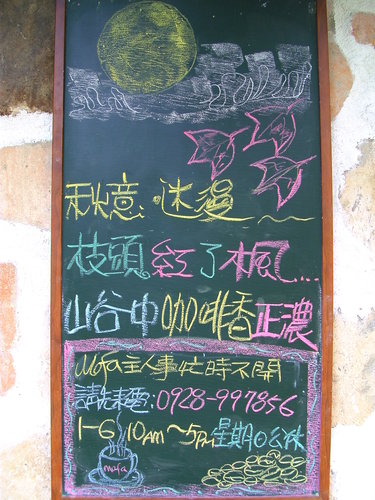 秋意·迷漫
枝頭紅了楓...
山谷中咖啡香正濃
Mofa主人事忙時不開
請先來電:0928-997856
1-6 10AM~5PM 星期日公休
mofa